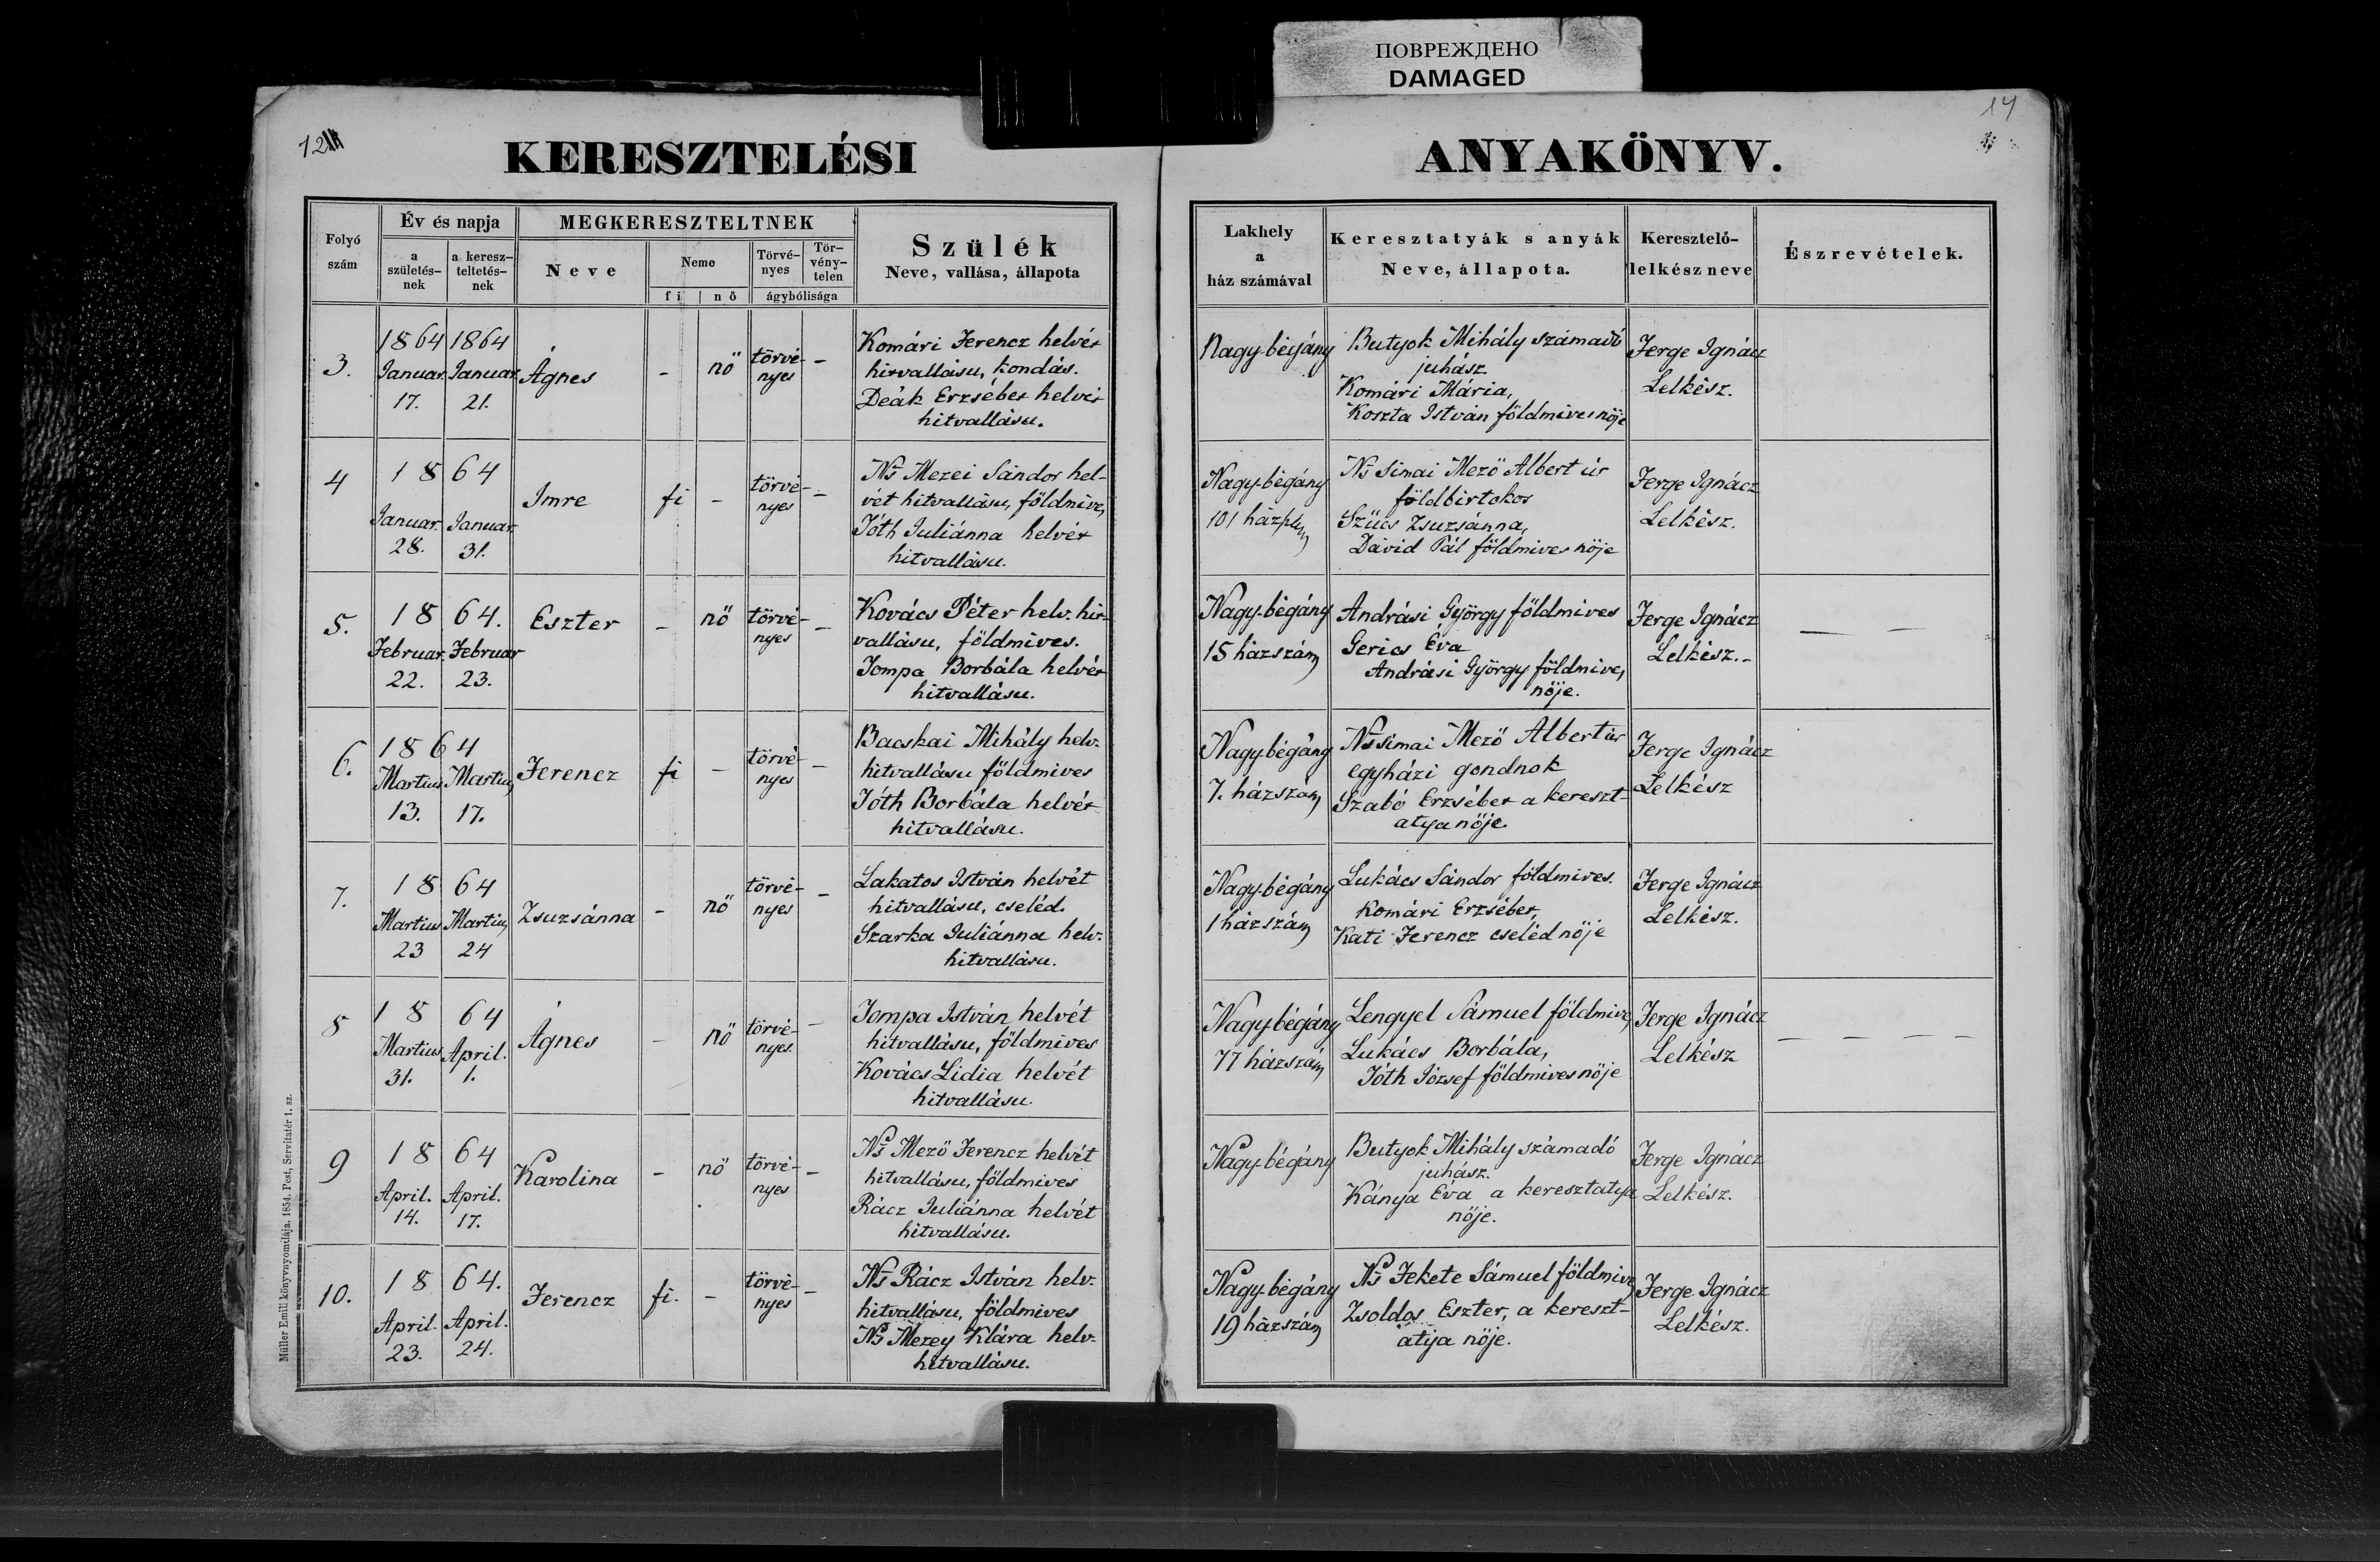 ПОВРЕЖДЕНО
DAMAGED
14
12
KERESZTELÉSI
ANYAKÖNYV.
Folyó szám
Év és napja
a születés-nek
a keresz-teltetés-nek
MEGKERESZTELTNEK
Neve
Neme
fi | nő
Törvé-nyes
Tör-vény-telen
ágybólisága
Szülék
Neve, vallása, állapota
Lakhely
a
ház számával
Keresztatyák s anyák
Neve, állapota.
Keresztelő-
lelkész neve
Észrevételek.
3.
1864 1864
Januar. Januar.
17. 21.
Ágnes
-
nő
törvé-
nyes
-
Komári Ferencz helvét
hitvallásu, kondás.
Deák Erzsébet helvét
hitvallásu.
Nagy-bégány
Butyok Mihály számadó
juhász
Komári Mária,
Koszta István földmives nője
Ferge Ignácz
Lelkész.
4
1864
Januar. Januar.
28. 31.
Imre
fi
-
törvé-
nyes
-
Ns Mezei Sándor hel-
vét hitvallásu, földmives
Tóth Juliánna helvét
hitvallásu.
Nagy-bégány
101 ház
Ns Simai Mező Albert úr
földbirtokos
Szücs Zsuzsánna,
Dávid Pál földmives nője
Ferge Ignácz
Lelkész.
5.
1864.
Februar. Februar
22. 23.
Eszter
-
nő
törvé-
nyes
-
Kovács Péter helv. hit-
vallásu, földmives.
Tompa Borbála helvét
hitvallásu.
Nagy-bégány
15 házszám
Andrási György földmives
Gerics Éva
Andrási György földmives
nője.
Ferge Ignácz
Lelkész.-
— — —
6.
1864
Martius Martius
13. 17.
Ferencz
fi
-
törvé-
nyes
-
Bacskai Mihály helv.
hitvallásu földmives
Tóth Borbála helvét
hitvallásu.
Nagy-bégány
7. házszám
Ns Simai Mező Albert úr
egyházi gondnok
Szabó Erzsébet a kereszt-
atya nője.
Ferge Ignácz
Lelkész
7.
1864
Martius Martius
23 24
Zsuzsánna
-
nő
törvé-
nyes
-
Lakatos István helvét
hitvallásu, cseléd.
Szarka Juliánna helv.
hitvallásu.
Nagy-bégány
1 házszám
Lukács Sándor földmives.
Komári Erzsébet,
Kati Ferencz cseléd nője
Ferge Ignácz
Lelkész.
8
1864
Martius April.
31. 1.
Ágnes
-
nő
törvé-
nyes.
-
Tompa István helvét
hitvallásu, földmives
Kovács Lidia helvét
hitvallásu.
Nagy-bégány
77 házszám
Lengyel Sámuel földmives
Lukács Borbála,
Tóth József földmives nője
Ferge Ignácz
Lelkész
— — — —
9
1864
April. April.
14. 17.
Karolina
-
nő
törvé-
nyes
-
Ns Mező Ferencz helvét
hitvallásu, földmives
Rácz Juliánna helvét
hitvallásu.
Nagy-bégány
Butyok Mihály számadó
juhász.
Kánya Éva a keresztatya
nője.
Ferge Ignácz
Lelkész.
10.
1864.
April. April.
23. 24.
Ferencz
fi.
-
törvé-
nyes
-
Ns Rácz István helv.
hitvallásu, földmives
Ns Mezey Klára helv.
hitvallásu.
Nagy-bégány
19 házszám
Ns Fekete Sámuel földmives
Zsoldos Eszter, a kereszt-
atya nője.
Ferge Ignácz
Lelkész.
Müller Emil könyvnyomdája. 1854. Pest, Servitatér 1. sz.